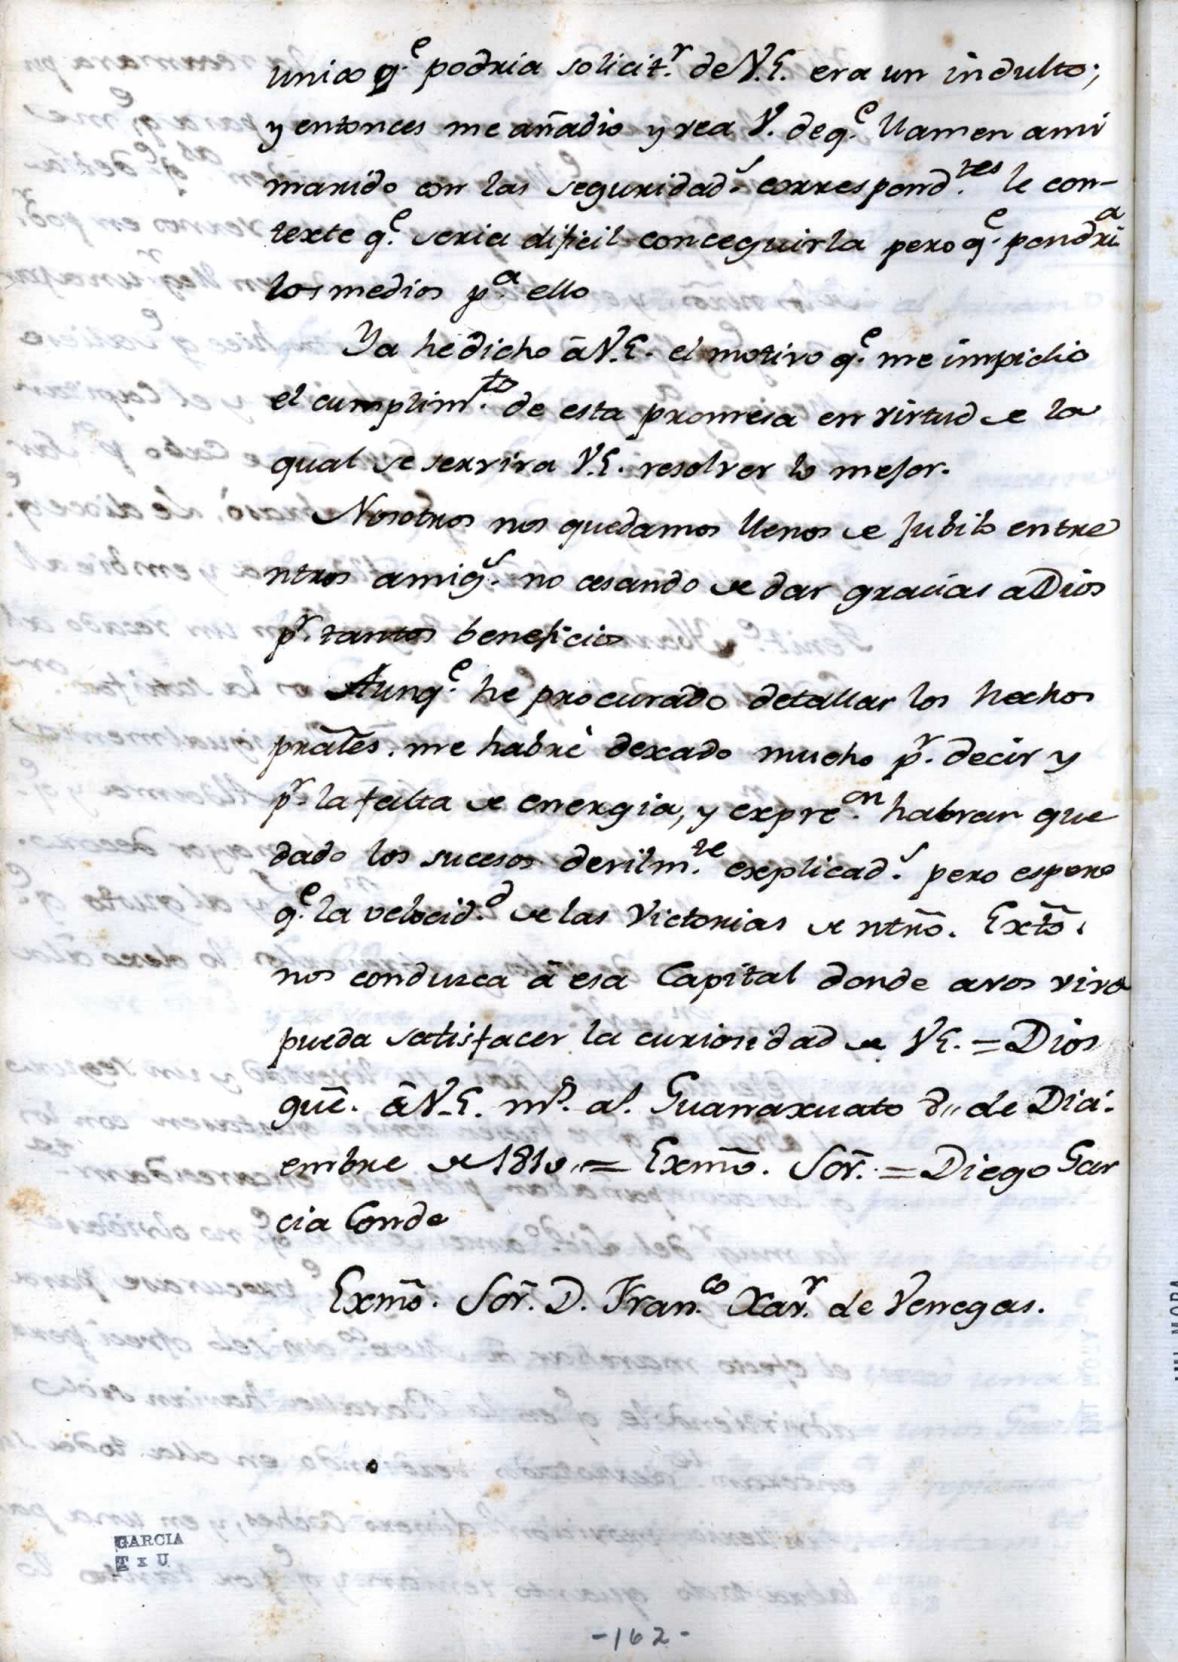 unico q.e podria solicit.r de V.E. era un indulto;
y entonces me añadio y vea V. de q.e llamen a mi
marido con las seguridad.s correspond.tes le con-
texte q.e seria dificil conceguirla pero q.e pondria
los medios p.a ello
Ya he dicho â V.E. el motivo q.e me impidio
el cumplim.to de esta promesa en virtud de la
qual se servira V.E. resolver lo mejor.
Nosotros nos quedamos llenos de Jubilo entre
ntros amig.s no cesando de dar gracias a Dios
p.r tantos beneficios
Aunq.e he procurado detallar los hechos
prales. me habrè dexado mucho p.r decir y
p.r la falta de energia, y expre.on habran que
dado los sucesos devilm.te explicad.s pero espero
q.e la velocid.d de las Victorias de ntrõ. Extõ.
nos condusca â esa Capital donde a vos viva
pueda satisfacer la curiosidad de VE. = Dios
guê. â V.E. m.s a.s Guanaxuato 8,, de Dici-
embre de 1810,, = Exmõ. Sor̃. = Diego Gar
cia Conde
Exmõ. Sor̃. D. Fran.co Xav.r de Venegas.
GARCIA
T x U
-162-